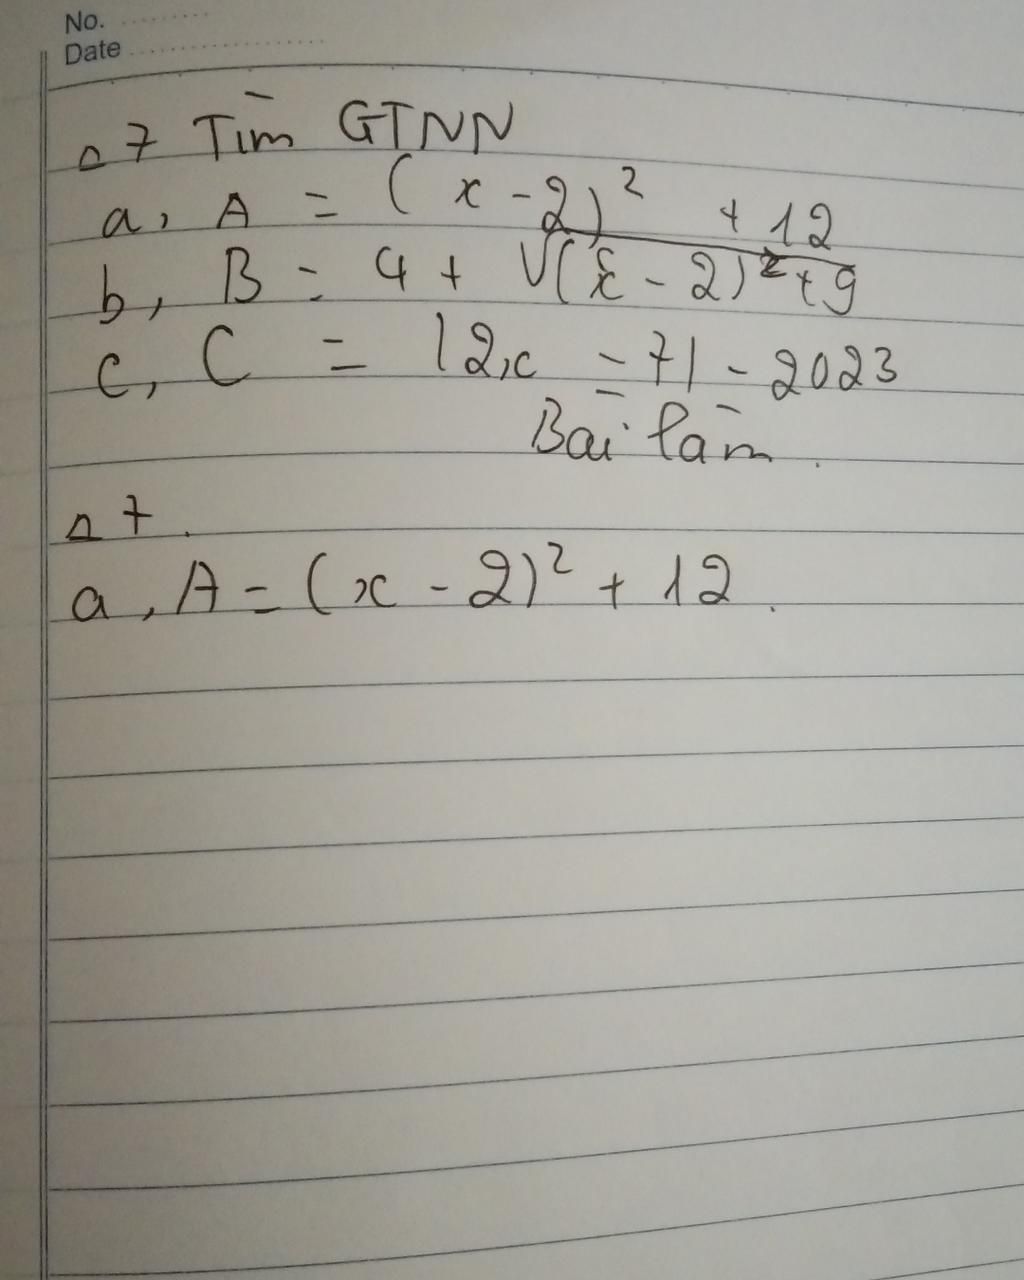 No.
Date
△7 Tìm GTNN
a, A = (x - 2)² + 12
b, B = 4 + √(x - 2)² + 9
c, C = |2x - 7| - 2023
Bài làm.
△7.
a, A = (x - 2)² + 12.